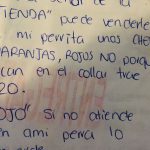 señor de la
TIENDA" puede venderle
mi perrita unos CHE
NARANJAS, ROJOS NO porque
can En el collar trae
20.
OJO" si no atiende
n ami perra lo